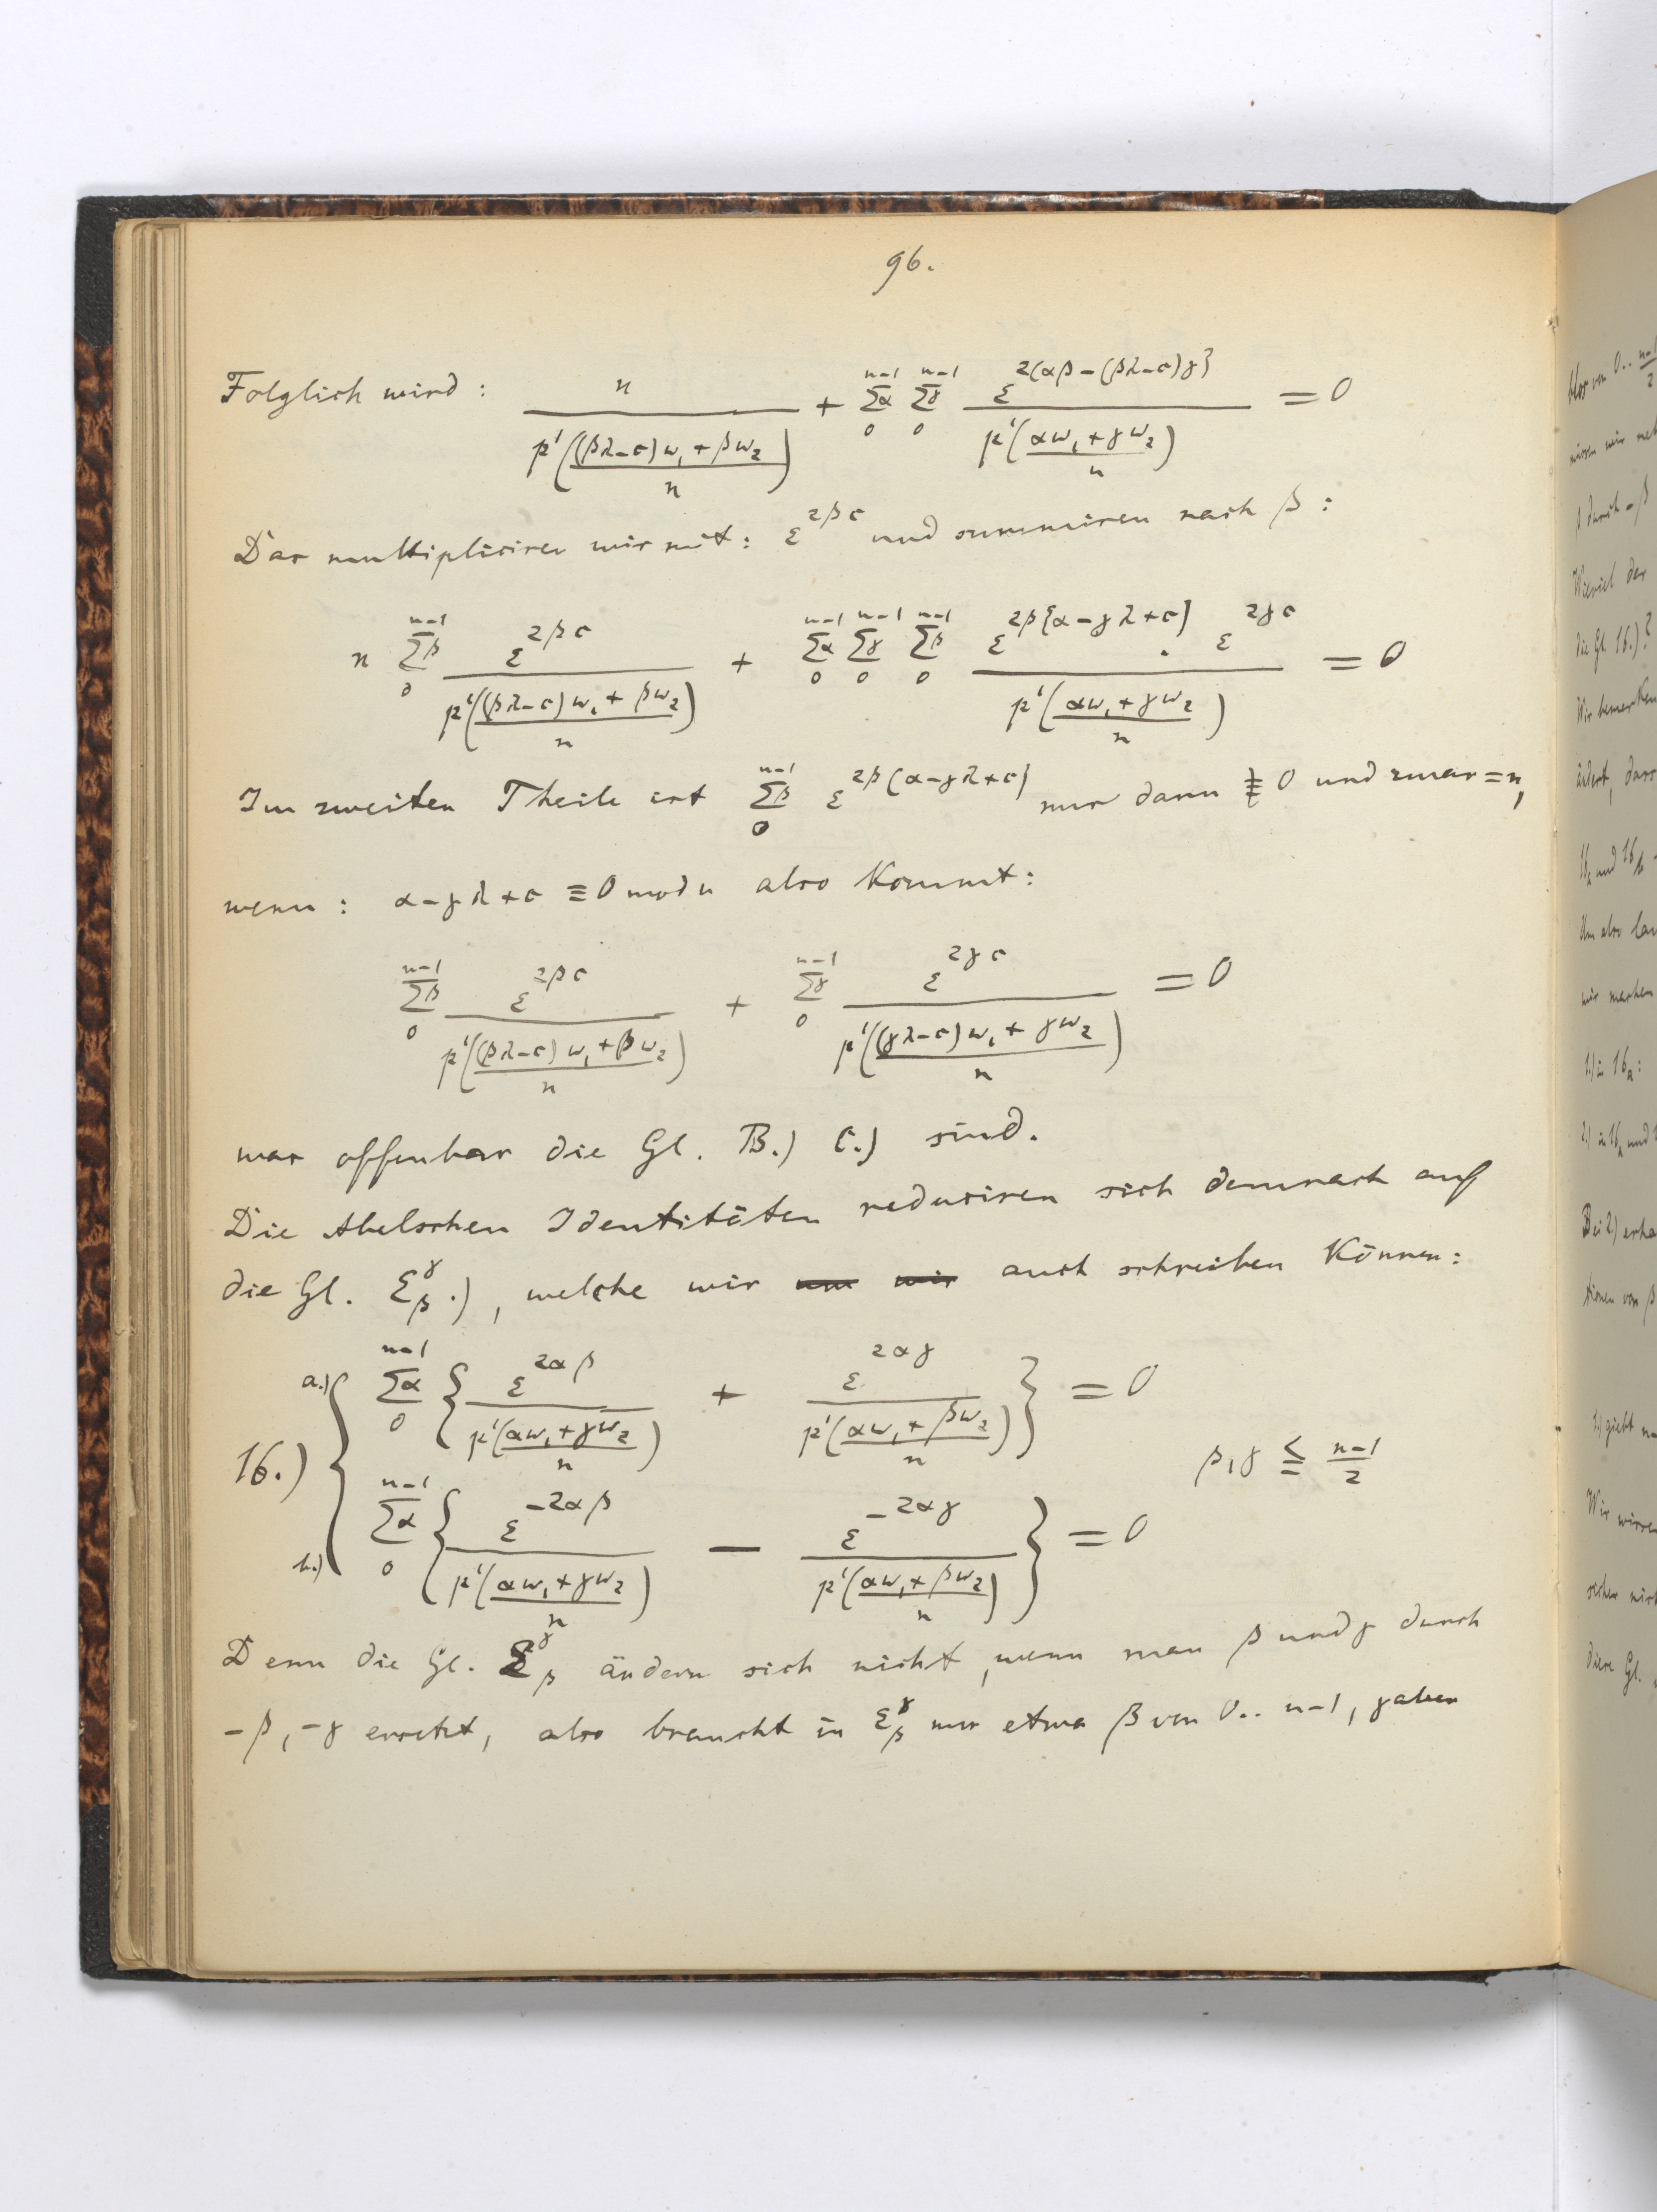 96.
Folglich wird: \frac{n}{p'\left(\frac{(βλ-c)w_1+βw_2}{n}\right)} + \sum_0^{n-1}α \sum_0^{n-1}γ \frac{ε^{2(αβ-(βλ-c)γ)}}{p'\left(\frac{αw_1+γw_2}{n}\right)} = 0
Das multipliciren wir mit: ε^{2βc} und summiren nach β:
n \sum_0^{n-1}β \frac{ε^{2βc}}{p'\left(\frac{(βλ-c)w_1+βw_2}{n}\right)} + \sum_0^{n-1}α \sum_0^{n-1}γ \sum_0^{n-1}β \frac{ε^{2β[α-γλ+c]} . ε^{2γc}}{p'\left(\frac{αw_1+γw_2}{n}\right)} = 0
Im zweiten Theile ist \sum_0^{n-1}β ε^{2β(α-γλ+c)} nur dann ≢ 0 und zwar = n,
wenn: α-γλ+c ≡ 0 mod n also kommt:
\sum_0^{n-1}β \frac{ε^{2βc}}{p'\left(\frac{(βλ-c)w_1+βw_2}{n}\right)} + \sum_0^{n-1}γ \frac{ε^{2γc}}{p'\left(\frac{(γλ-c)w_1+γw_2}{n}\right)} = 0
was offenbar die Gl. B.) C.) sind.
Die Abelschen Identitäten reduciren sich demnach auf
die Gl. Σ_β^γ.), welche wir auch schreiben können:
16.) a.) \sum_0^{n-1}α \left\{\frac{ε^{2αβ}}{p'\left(\frac{αw_1+γw_2}{n}\right)} + \frac{ε^{2αγ}}{p'\left(\frac{αw_1+βw_2}{n}\right)}\right\} = 0
β,γ ≦ \frac{n-1}{2}
b.) \sum_0^{n-1}α \left\{\frac{ε^{-2αβ}}{p'\left(\frac{αw_1+γw_2}{n}\right)} - \frac{ε^{-2αγ}}{p'\left(\frac{αw_1+βw_2}{n}\right)}\right\} = 0
Denn die Gl. Σ_β^γ ändern sich nicht, wenn man β und γ durch
-β, -γ ersetzt, also braucht in Σ_β^γ nur etwa β von 0.. n-1, γ aber